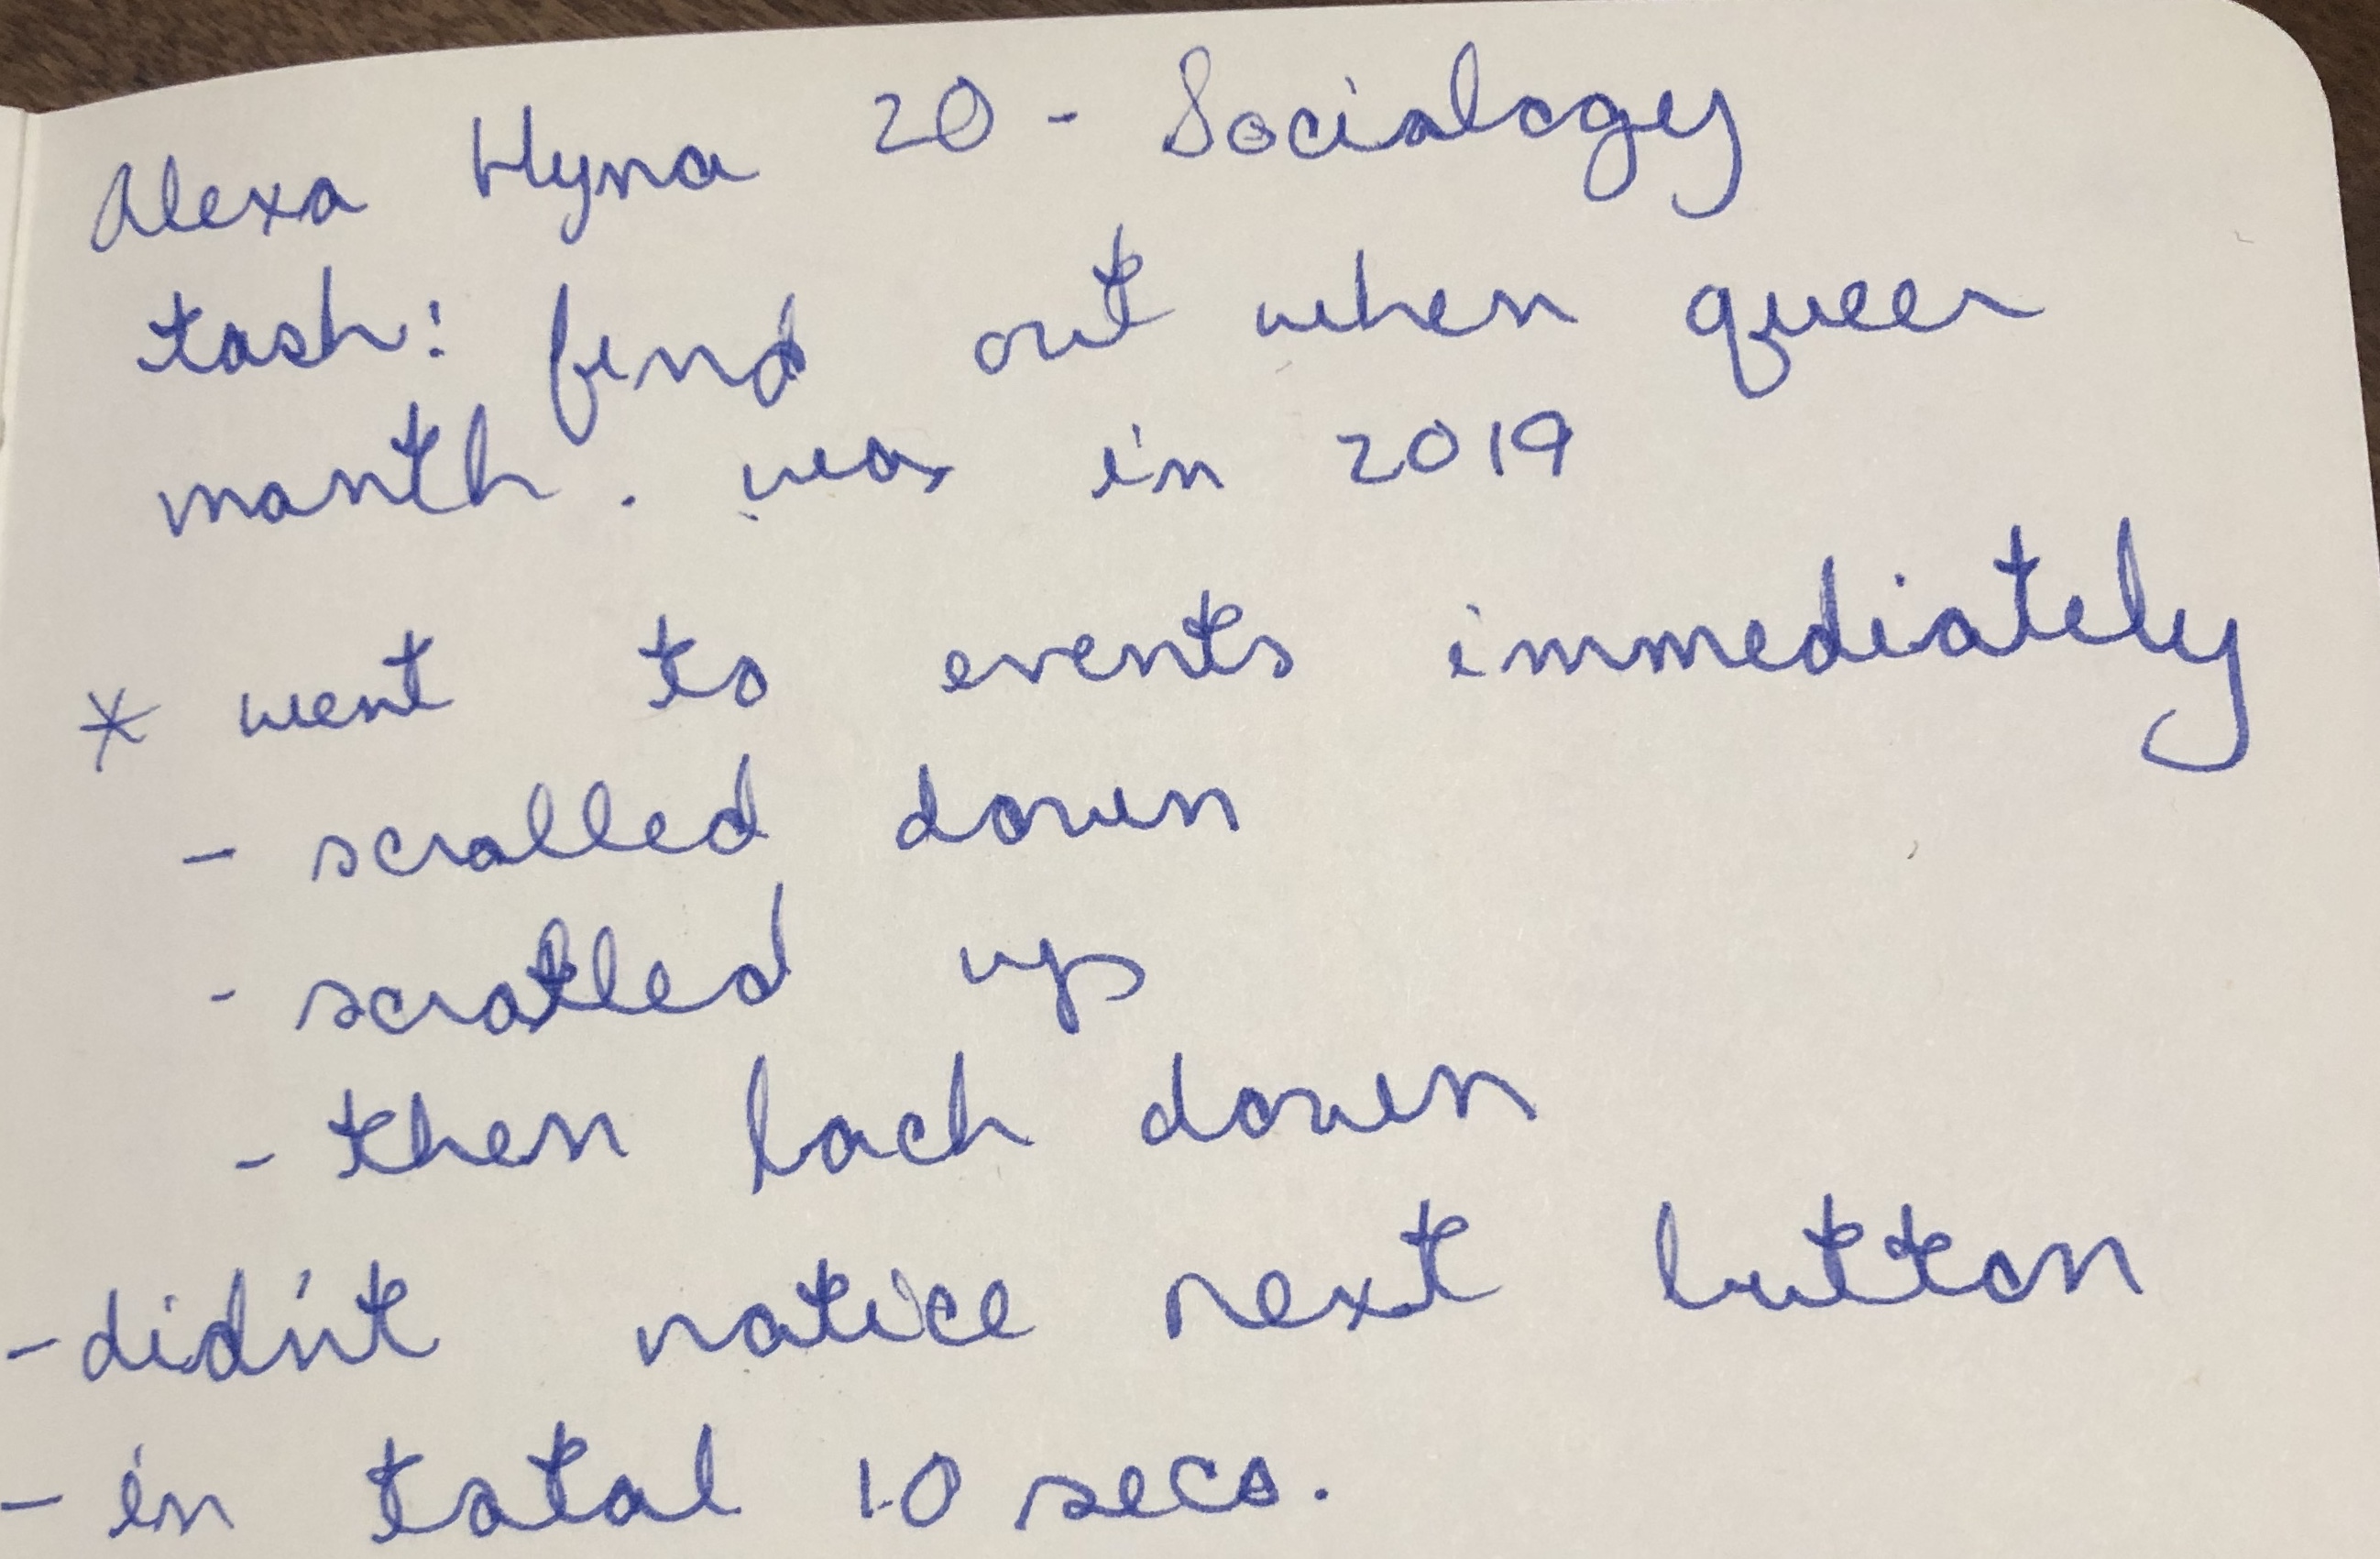 Alexa Hyna 20 - Sociology
task: find out when queer
month. was in 2019
* went to events immediately
- scrolled down
- scrolled up
- then back down
- didn't notice next button
- in total 10 secs.